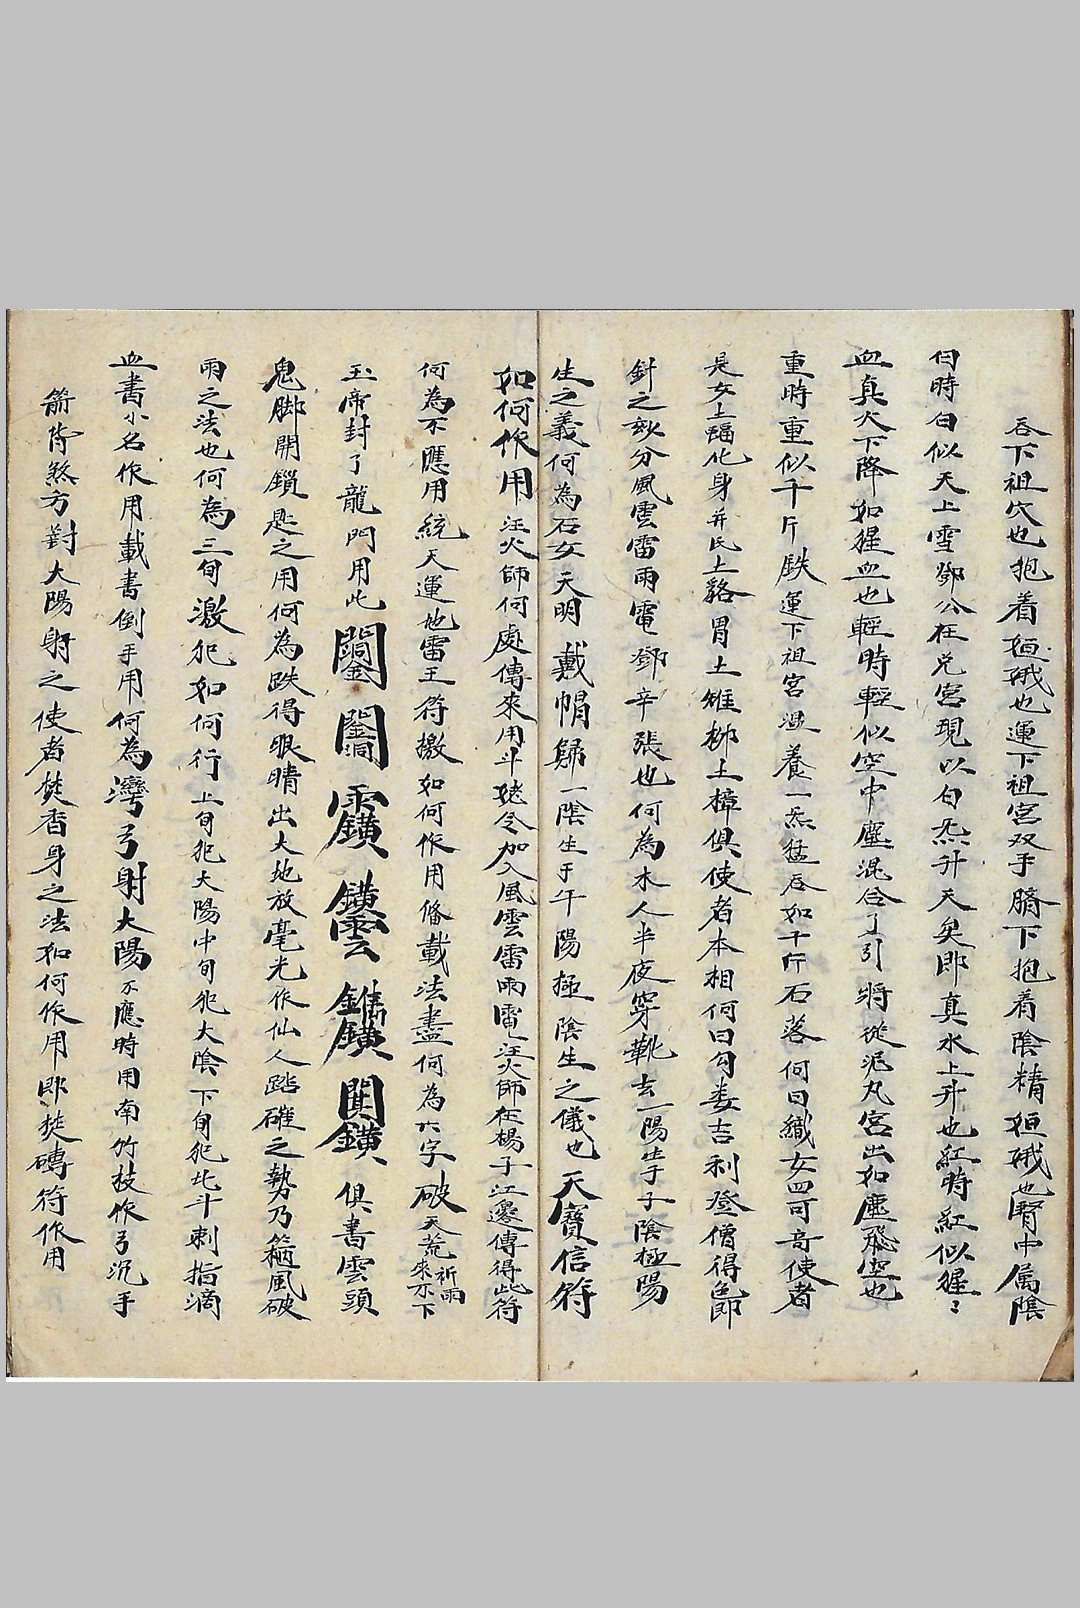 吞下祖穴也抱着姮娥也運下祖宮双手臍下抱着陰精姮娥也腎中属陰
白時白似天上雪鄧公在兌宮現以白炁升天矣即真水上升也紅時紅似猩〻
血真火下降如猩血也輕時輕似空中塵混合了引將從泥丸宮出如塵飛空也
重時重似千斤鉄運下祖宮温養一炁猛吞如千斤石落何曰織女四可音使者
是女土蝠化身并氏土貉胃土雉柳土樟俱使者本相何曰勾娄吉利登僧得色即
針之玅分風雲雷雨電鄧辛張也何為木人半夜穿靴去一陽生于子陰極陽
生之義何為石女天明戴帽歸一陰生于午陽極陰生之儀也天寶信符
如何作用汪火師何處傳來用斗姥令加入風雲雷雨電汪火師在楊子江邊傳得此符
何為不應用統天運地雷王符檄如何作用俻載法盡何為六字破天荒祈雨來不下
玉帝封了龍門用此 俱書雲頭
鬼脚開鎖匙之用何為跌得眼晴出大地放毫光作仙人踏碓之勢乃 風破
雨之法也何為三旬激犯如何行上旬犯太陽中旬犯太陰下旬犯北斗刺指滴
血書小名作用載書倒手用何為灣弓射太陽不應時用南竹枝作弓沉手
箭背煞方對太陽射之使者焚香身之法如何作用即焚磚符作用